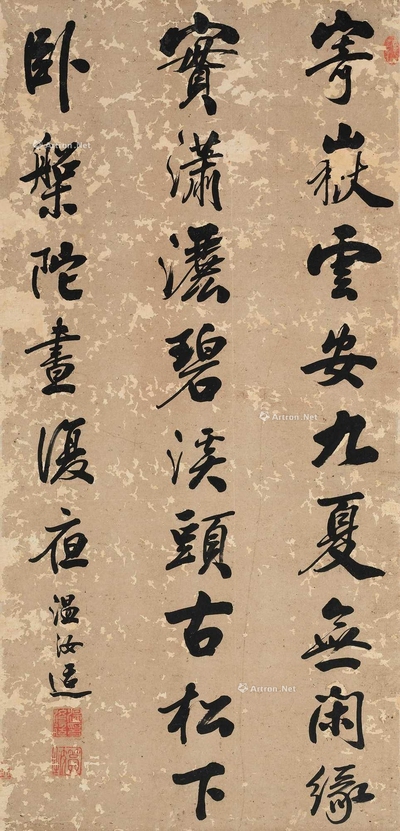 寄嶽雲安九夏無閑緣
實瀟灑碧溪頭古松下
臥槃陀晝復夜
温汝适
Artron.Net
Artron.Net
Artron.Net